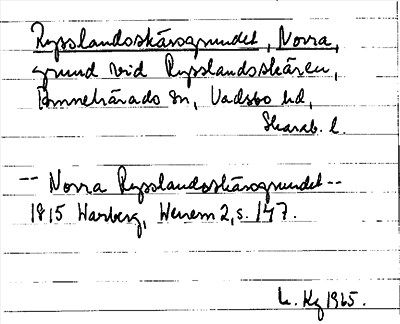 Rysslandsskärsgrundet, Norra,
grund vid Rysslandsskären,
Bromsehärads sn, Vadsbo hd,
Skarab. l.
-- Norra Rysslandsskärsgrundet --
1815 Warberg, Wenern 2, s. 147.
Kg 1965.